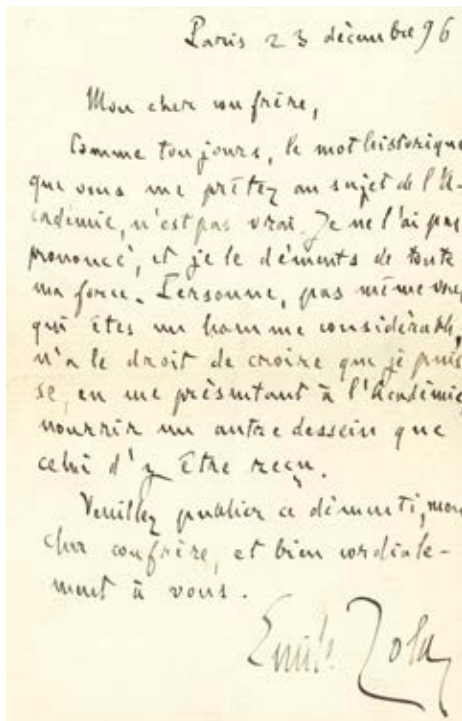 Paris 23 décembre 96
Mon cher confrère,
Comme toujours, le mot historique
que vous me prêtez au sujet de l'A-
cadémie, n'est pas vrai. Je ne l'ai pas
prononcé, et je le déments de toute
ma force. Personne, pas même vous,
qui êtes un homme considérable,
n'a le droit de croire que je puis-
se, en me présentant à l'Académie,
nourrir un autre dessein que
celui d'y être reçu.
Veuillez publier ce démenti, mon
cher confrère, et bien cordiale-
ment à vous.
Emile Zola